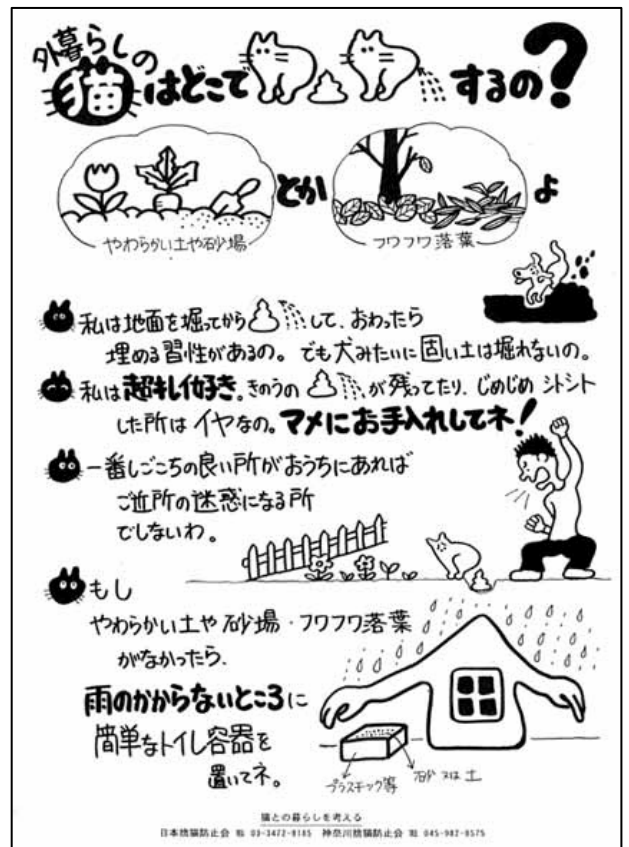 外暮らしの
猫はどこで するの?
とか
よ
やわらかい土や砂場
フワフワ落葉
私は地面を掘ってから して、おわったら
埋める習性があるの。でも犬みたいに固い土は掘れないの。
私は超キレイ好き。きのうの が残ってたり、じめじめ シトシト
した所は イヤなの。マメにお手入れしてネ!
一番しごこちの良い所がおうちにあれば
ご近所の迷惑になる所
でしないわ。
もし
やわらかい土や砂場・フワフワ落葉
がなかったら、
雨のかからないところに
簡単なトイレ容器を
置いてネ。
プラスチック等
砂 又は 土
猫との暮らしを考える
日本捨猫防止会 ℡ 03-3472-8185 神奈川捨猫防止会 ℡ 045-982-8575